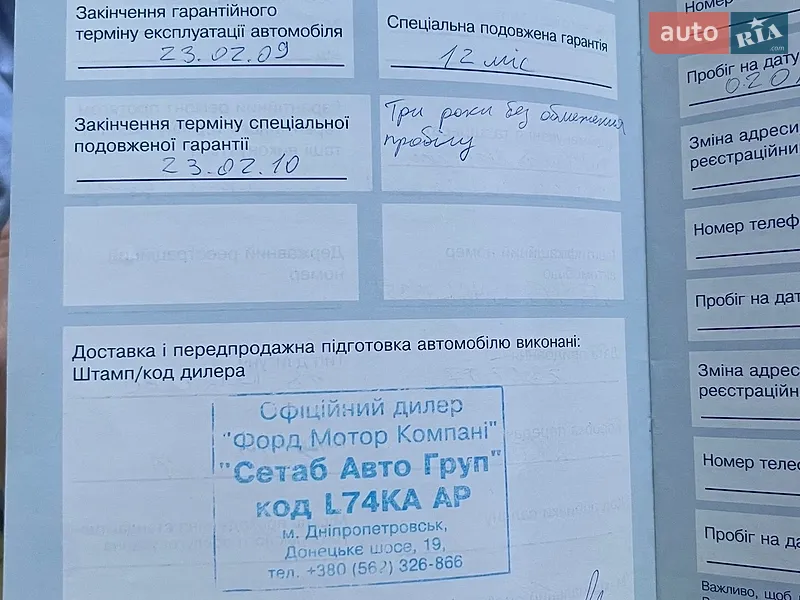 Закінчення гарантійного
терміну експлуатації автомобіля
23.02.09
Спеціальна подовжена гарантія
12 міс
Закінчення терміну спеціальної
подовженої гарантії
23.02.10
Три роки без обмеження
пробігу
Доставка і передпродажна підготовка автомобілю виконані:
Штамп/код дилера
Офіційний дилер
"Форд Мотор Компані"
"Сетаб Авто Груп"
код L74KA AP
м. Дніпропетровськ,
Донецьке шосе, 19,
тел. +380 (562) 326-866
Номер
Пробіг на дату
Зміна адреси
реєстраційни
Номер телеф
Пробіг на дат
Зміна адрес
реєстраційн
Номер телеф
Пробіг на да
Важливо, щоб
auto RIA
.com